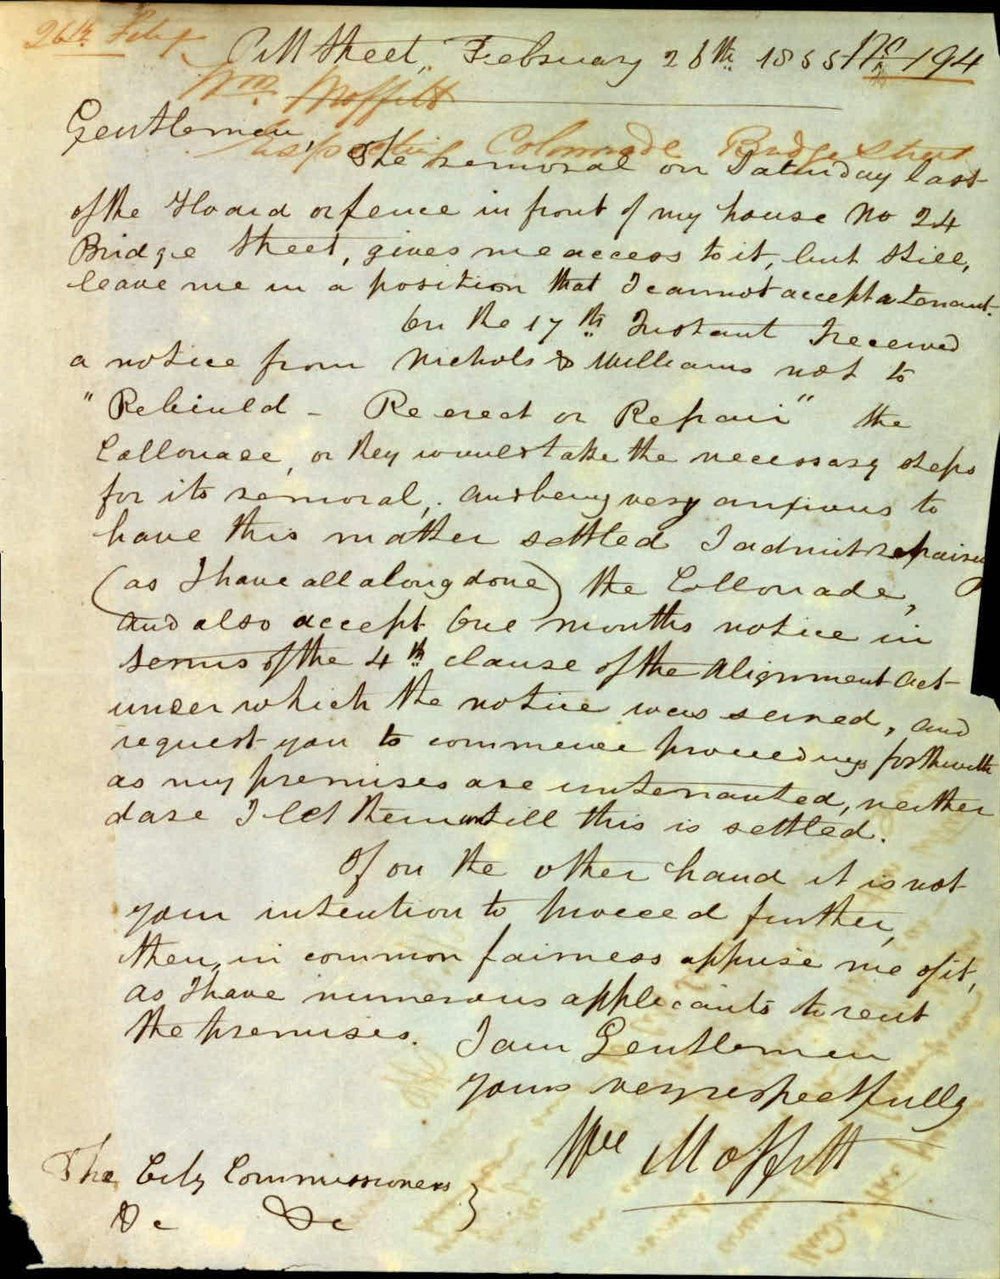 26th Feby
Pitt Street, February 26th 1855 No 194
Wm Moffitt
respecting Colonnade Bridge Street
Gentlemen,
The removal on Saturday last
of the Hoard or fence in front of my house No 24
Bridge Street, gives me access to it, but still,
leave me in a position that I cannot accept a tenant.
On the 17th Instant I received
a notice from Nichols & Williams not to
"Rebiuld - Re erect or Repair" the
Collonade, or they would take the necessary steps
for its removal, and being very anxious to
have this matter settled I admit repairing
(as I have all along done) the Collonade,
and also accept One months notice in
terms of the 4th clause of the Alignment Act
under which the notice was served, and
request you to commence proceedings forthwith
as my premises are untenanted, neither
dare I let them until this is settled.
If on the other hand it is not
your intention to proceed further,
then, in common fairness apprise me of it,
as I have numerous applicants to rent
the premises.
I am Gentlemen
yours very respectfully
Wm Moffitt
The City Commissioners
&c &c